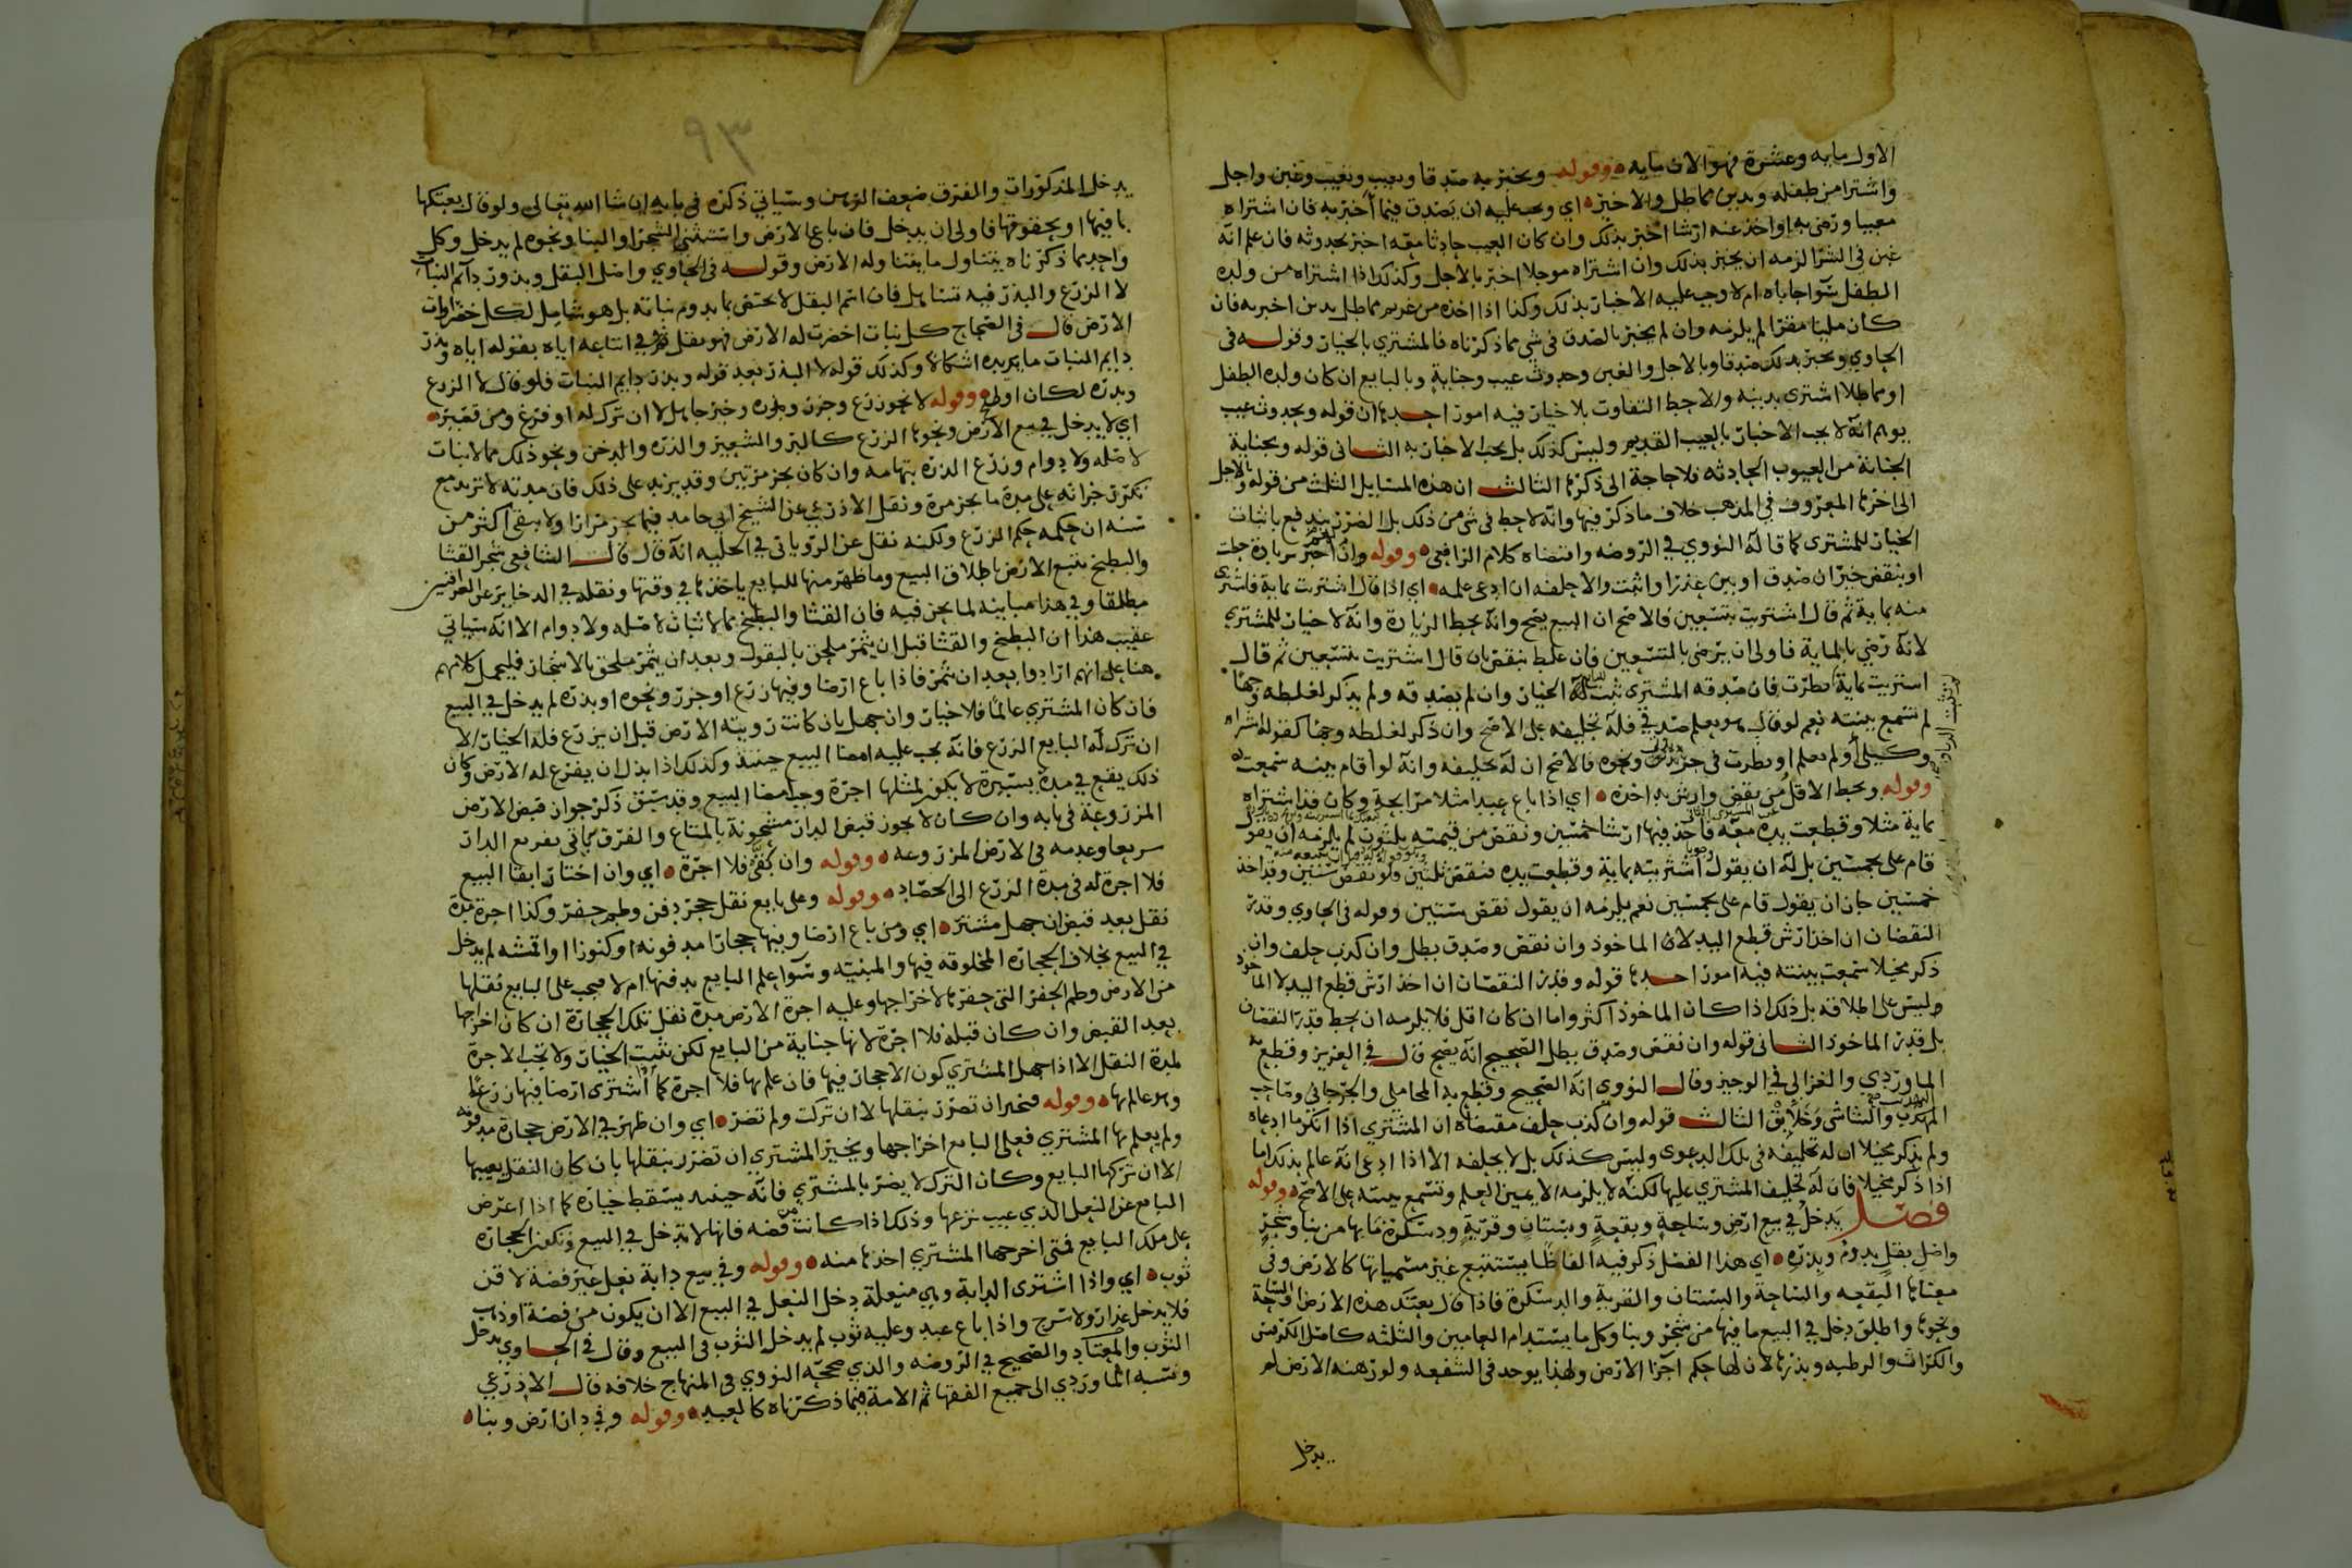 الاول مايه وعشرة فهو الان بمايه وقوله ويخبر به صدقا وبعيب وتعيب وغبن واجل
واشترا من طفله وبدين مماطل والاخير اي ويجب عليه ان يصدق فيما اخبر به فان اشتراه
معيبا ورضي به او اخذ عنه ارشا اخبر بذلك وان كان العيب حادثا معه اخبر بحدوثه فان علم انه
غبن في الشرا لزمه ان يخبر بذلك وان اشتراه موجلا اخبر بالاجل وكذلك اذا اشتراه من ولده
الطفل سوا حاباه ام لا وجب عليه الاخبار بذلك وكذا اذا اخذه من غريم مماطل بدين اخبر به فان
كان مليا مقرا لم يلزمه وان لم يخبر بالصدق في شي مما ذكرناه فالمشتري بالخيار وقوله في
الحاوي ويخبر بذلك صدقا وبالاجل والغبن وحدوث عيب وجناية وبالبايع ان كان ولده الطفل
او مماطلا اشترى بدينه ولا حط التفاوت بلا خيار فيه امور احدها ان قوله وبحدوث عيب
يوهم انه لا يجب الاخبار بالعيب القديم وليس كذلك بل يجب الاخبار به الثاني قوله وبجناية
الجناية من العيوب الحادثه فلا حاجة الى ذكرها الثالث ان هذه المسايل الثلث من قوله وبالاجل
الى اخرها المعروف في المذهب خلاف ما ذكر فيها وانه لا حط في شي من ذلك بل الضرر يندفع باثبات
الخيار للمشتري كما قاله النووي في الروضه واقتضاه كلام الرافعي وقوله وان اخبر بزيادة حطت
او بنقص خير ان صدق او بين عذرا واثبت والا حلفه ان ادعى علمه اي اذا قال اشتريت بماية فاشترى
منه بماية ثم قال اشتريت بتسعين فالاصح ان البيع يصح وانه يحط الزيادة وانه لا خيار للمشتري
لانه رضي بالماية فاولى ان يرضى بالتسعين فان غلط بنقص بان قال اشتريت بتسعين ثم قال
اشتريت بماية نظرت فان صدقه المشتري ثبت له الخيار وان لم يصدقه ولم يذكر لغلطه وجها
لم تسمع بينته نعم لو قال هو يعلم صدقي فله تحليفه على الاصح وان ذكر لغلطه وجها كقوله اشتراه
وكيلي ولم اعلم او نظرت في جريدتي ونحوه فالاصح ان له تحليفه وانه لو اقام بينه سمعت
وقوله ويحط الاقل من نقص وارش يد اخذه اي اذا باع عبدا مثلا مرابحة وكان قد اشتراه
بماية مثلا وقطعت يده معه فاخذ فيها ارشا خمسين ونقص من قيمته ثلثون لم يلزمه ان يقول
قام علي بخمسين بل له ان يقول اشتريته بماية وقطعت يده فنقص ثلثين ولو نقص ستين وقد اخذ
خمسين جاز ان يقول قام علي بخمسين نعم يلزمه ان يقول نقص ستين وقوله في الحاوي وقدر
النقصان ان اخذ ارش قطع اليد لا الماخوذ وان نقص وصدق بطل وان كذب حلف وان
ذكر مخيلا سمعت بينته فيه امور احدها قوله وقدر النقصان ان اخذ ارش قطع اليد لا الماخوذ
وليس على اطلاقه بل ذلك اذا كان الماخوذ اكثر واما ان كان اقل فلا يلزمه ان يحط قدر النقصان
بل قدر الماخوذ الثاني قوله وان نقص وصدق بطل الصحيح انه يصح قال في العزيز وقطع به
الماوردي والغزالي في الوجيز وقال النووي انه الصحيح وقطع به المحاملي والجرجاني وصاحب
المهذب والشاشي وخلايق الثالث قوله وان كذب حلف مقتضاه ان المشتري اذا انكر ما ادعاه
ولم يذكر مخيلا ان له تحليفه في تلك الدعوى وليس كذلك بل لا يحلفه الا اذا ادعى انه عالم بذلك اما
اذا ذكر مخيلا فان له تحليف المشتري عليها لكنه لا يلزمه الا يمين العلم وتسمع بينته على الاصح وقوله
فصل يدخل في بيع ارض وساحة وبقعة وبستان وقرية ودسكرة ما بها من بنا وشجر
واصل بقل يدوم وبذره اي هذا الفصل ذكر فيه الفاظا يستتبع غير مسمياتها كالارض وفي
معناها البقعه والساحة والبستان والقرية والدسكرة فاذا قال بعتك هذه الارض او الساحة
ونحوها واطلق دخل في البيع ما فيها من شجر وبنا وكل ما يستدام العامين والثلثه كاصل الكرفس
والكراث والرطبه وبذرها لان لها حكم اجزا الارض ولهذا يوخذ في الشفعه ولو رهنه الارض لم
يدخل
٩٣
يدخل المذكورات والفرق ضعف الرهن وسياتي ذكره في بابه ان شا الله تعالى ولو قال بعتكها
بما فيها او بحقوقها فاولى ان يدخل فان باع الارض واستثنى الشجر او البنا ونحوه لم يدخل وكل
واحد مما ذكرناه يتناول ما يتناوله الارض وقوله في الحاوي واصل البقل وبذور دايم النبات
لا الزرع والبذر فيه تساهل فان اسم البقل لا يختص بما يدوم نباته بل هو شامل لكل خضراوات
الارض قال في الصحاح كل نبات اخضرت له الارض فهو بقل وفي اتباعه اياه بقوله اياه وبذر
دايم النبات ما يزيده اشكالا وكذلك قوله لا البذر بعد قوله وبذر دايم النبات فلو قال لا الزرع
وبذره لكان اولى وقوله لا نحو زرع وجزر وبذره وخير جاهل لا ان ترك له او فرغ ومن قصير
اي لا يدخل في بيع الارض ونحوها الزرع كالبر والشعير والذره والدخن ونحو ذلك مما لا نبات
لاصله ولا دوام وزرع الذره بتهامه وان كان يجز مرتين وقد يزيد على ذلك فان مدته لا تزيد مع
تكرر جزاته على مدة ما يجز مرة ونقل الاذرعي عن الشيخ ابي حامد فيما يجز مرارا ولا يبقى اكثر من
سنه ان حكمه حكم الزرع ولكنه نقل عن الروياني في الحليه انه قال قال الشافعي شجر القثا
والبطيخ يتبع الارض باطلاق البيع وما ظهر منها للبايع ياخذها في وقتها ونقله في الدخاير عن العراقيين
مطلقا وفي هذا مباينه لما نحن فيه فان القثا والبطيخ مما لا ثبات لاصله ولا دوام الا انه سياتي
عقيب هذا ان البطيخ والقثا قبل ان يثمر ملحق بالبقول وبعد ان يثمر ملحق بالاشجار فليحمل كلامهم
هنا على انهم ارادوا بعد ان تثمر فاذا باع ارضا وفيها زرع او جزر ونحوه او بذره لم يدخل في البيع
فان كان المشتري عالما فلا خيار وان جهل بان كانت رويته الارض قبل ان يزرع فله الخيار الا
ان ترك له البايع الزرع فانه يجب عليه امضا البيع حينئذ وكذلك اذا بذل ان يفرغ له الارض وكان
ذلك يقع في مدة يسيرة لا يكون لمثلها اجرة وجب امضا البيع وقد سبق ذكر جواز قبض الارض
المزروعة في بابه وان كان لا يجوز قبض الدار مشحونة بالمتاع والفرق تاتي تفريع الدار
سريعا وعدمه في الارض المزروعه وقوله وان بقي فلا اجرة اي وان اختار ابقا البيع
فلا اجرة له في مدة الزرع الى الحصاد وقوله وعلى بايع نقل حجر دفن وطم حفر وكذا اجرة مدة
نقل بعد قبض ان جهل مشتر اي ومن باع ارضا وفيها حجارا مدفونه او كنوزا او اقمشه لم يدخل
في البيع بخلاف الحجاره المخلوقه فيها والمبنيه وسوا علم البايع بدفنها ام لا فيجب على البايع نقلها
من الارض وطم الحفر التي حفرها لاخراجها وعليه اجرة الارض مدة نقل تلك الحجارة ان كان اخراجها
بعد القبض وان كان قبله فلا اجرة لانها جناية من البايع لكن تثبت الخيار ولا تجب الاجرة
لمدة النقل الا اذا جهل المشتري كون الاحجار فيها فان علم بها فلا اجرة كما اشترى ارضا فيها زرع
وهو عالم بها وقوله فخير ان تضرر بنقلها لا ان تركت ولم تضر اي وان ظهر في الارض حجارة مدفونه
ولم يعلم بها المشتري فعلى البايع اخراجها ويخير المشتري ان تضرر بنقلها بان كان النقل يعيبها
الا ان تركها البايع وكان الترك لا يضر بالمشتري فانه حينئذ يسقط خياره كما اذا اعرض
البايع عن النعل الذي عيب نزعها وذلك اذا كانت من فضه فانها لا تدخل في البيع وتكون الحجارة
على ملك البايع فمتى اخرجها المشتري اخذها منه وقوله وفي بيع دابة نعل غير فضة لا قن
ثوب اي واذا اشترى الدابة وهي منعلة دخل النعل في البيع الا ان يكون من فضة او ذهب
فلا يدخل عذار ولا سرج واذا باع عبد وعليه ثوب لم يدخل الثوب في البيع وقال في الحاوي يدخل
الثوب والمعتاد والصحيح في الروضه والذي صححه النووي في المنهاج خلافه قال الاذرعي
ونسبه الماوردي الى جميع الفقها ثم الامة فيما ذكرناه كالعبد وقوله وفي دار ارض وبنا